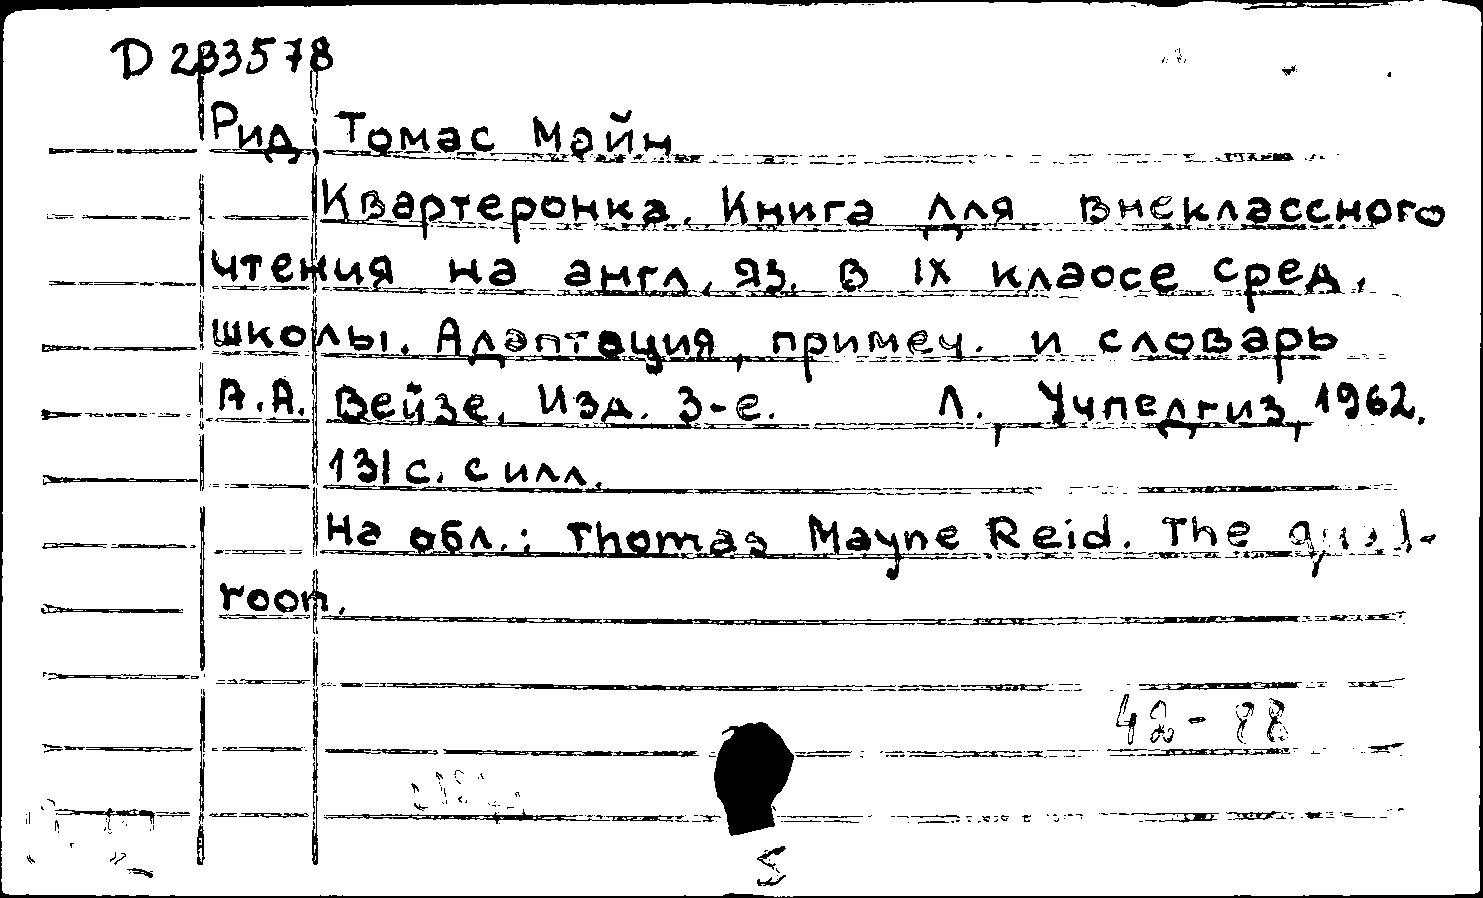 D 283578
Рид, Томас Майн
Квартеронка. Книга для внеклассного
чтения на англ. яз. в IX классе сред.
школы. Адаптация, примеч. и словарь
А.А. Вейзе. Изд. 3-е. Л., Учпедгиз, 1962.
131 с. с илл.
На обл.: Thomas Mayne Reid. The quad-
roon.
S